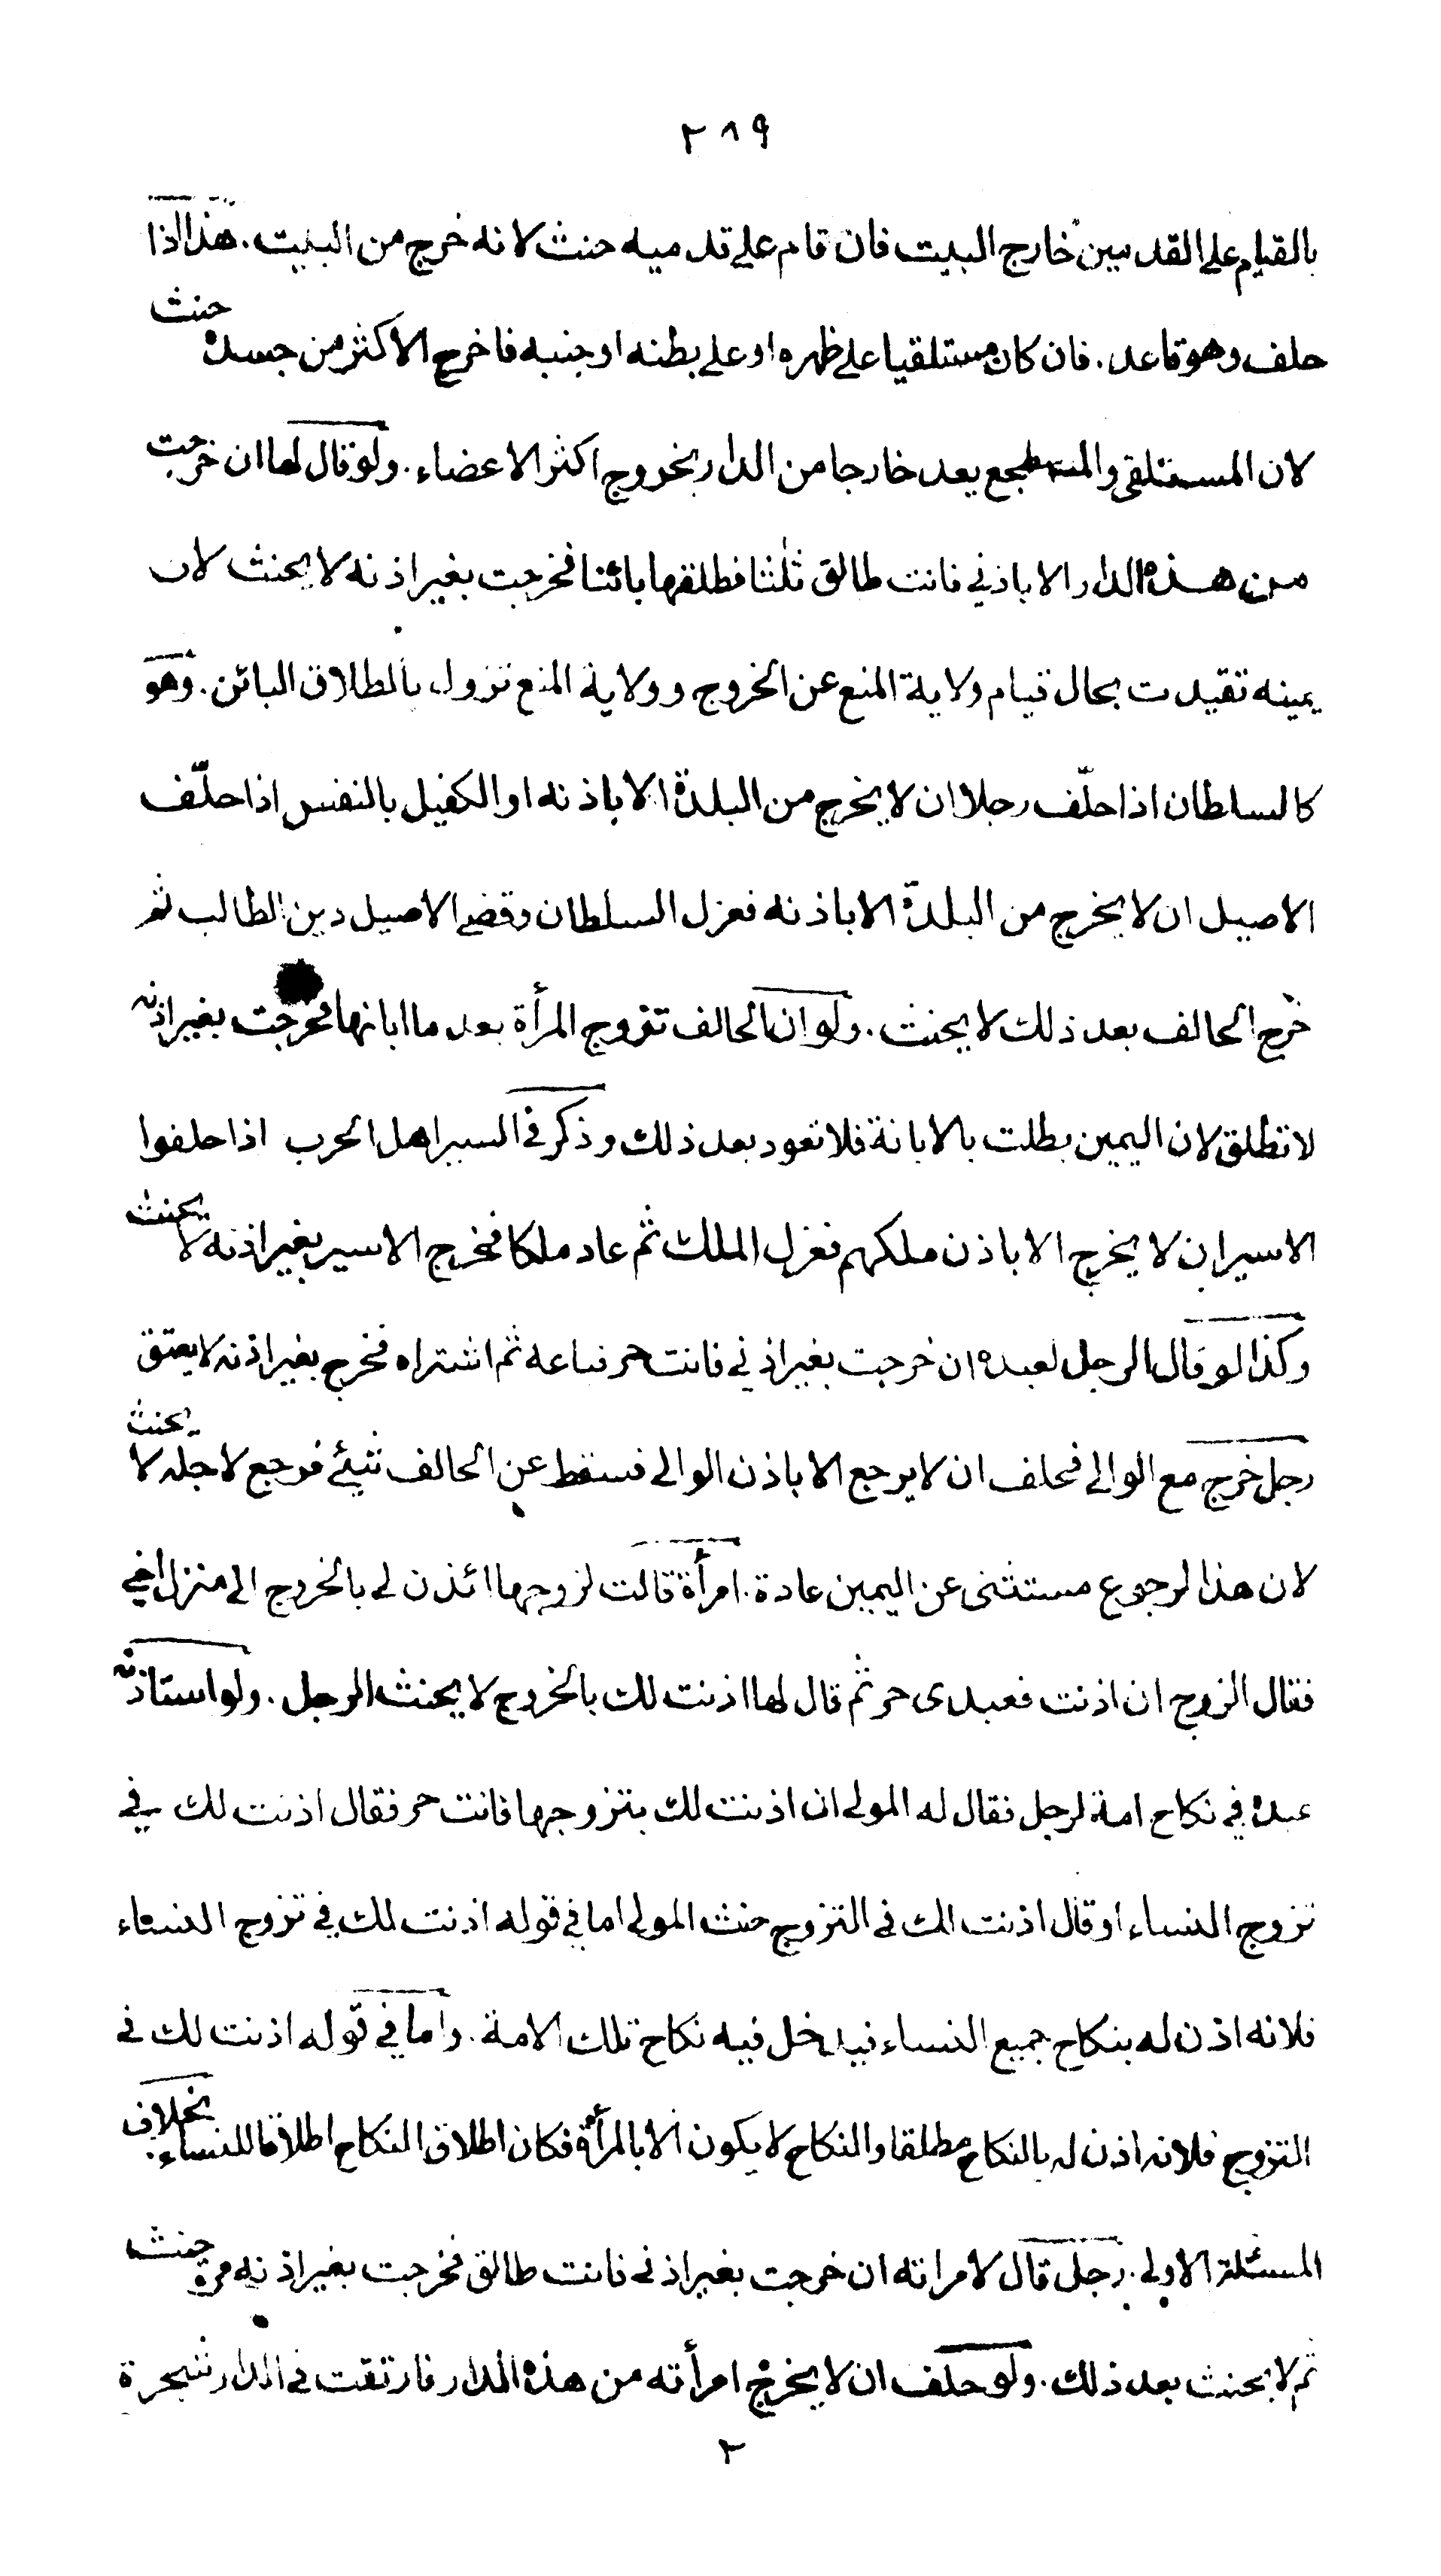 ٢٨٩
بالقيام على القدمين خارج البيت فان قام على قدميه حنث لانه خرج من البيت. هذا اذا
حلف وهو قاعد. فان كان مستلقيا على ظهره او على بطنه او جنبه فاخرج الاكثر من جسده حنث
لان المستلقى والمضطجع يعد خارجا من الدار بخروج اكثر الاعضاء. ولو قال لها ان خرجت
من هذه الدار الا باذني فانت طالق ثلثا فطلقها بائنا فخرجت بغير اذنه لا يحنث لان
يمينه تقيدت بحال قيام ولاية المنع عن الخروج وولاية المنع تزول بالطلاق البائن. وهو
كالسلطان اذا حلّف رجلا ان لا يخرج من البلدة الا باذنه او الكفيل بالنفس اذا حلّف
الاصيل ان لا يخرج من البلدة الا باذنه فعزل السلطان وقضى الاصيل دين الطالب ثم
خرج الحالف بعد ذلك لا يحنث. ولو ان الحالف تزوج المرأة بعد ما ابانها فخرجت بغير اذنه
لا تطلق لان اليمين بطلت بالابانة فلا تعود بعد ذلك وذكر في السير اهل الحرب اذا حلفوا
الاسير ان لا يخرج الا باذن ملكهم فعزل الملك ثم عاد ملكا فخرج الاسير بغير اذنه لا يحنث
وكذا لو قال الرجل لعبده ان خرجت بغير اذني فانت حر فباعه ثم اشتراه فخرج بغير اذنه لا يعتق
رجل خرج مع الوالي فحلف ان لا يرجع الا باذن الوالي فسقط عن الحالف شيئ فرجع لاجله لا يحنث
لان هذا لرجوع مستثنى عن اليمين عادة. امرأة قالت لزوجها ائذن لي بالخروج الى منزل اخي
فقال الزوج ان اذنت فعبدى حر ثم قال لها اذنت لك بالخروج لا يحنث الرجل. ولو استاذنه
عبده في نكاح امة لرجل فقال له المولى ان اذنت لك بتزوجها فانت حر فقال اذنت لك في
تزوج النساء او قال اذنت لك في التزوج حنث المولى اما في قوله اذنت لك في تزوج النساء
فلانه اذن له بنكاح جميع النساء فيدخل فيه نكاح تلك الامة. واما في قوله اذنت لك في
التزوج فلانه اذن له بالنكاح مطلقا والنكاح لا يكون الا بالمرأة فكان اطلاق النكاح اطلاقا للنساء. بخلاف
المسئلة الاولى. رجل قال لامراته ان خرجت بغير اذني فانت طالق فخرجت بغير اذنه مرة حنث
ثم لا يحنث بعد ذلك. ولو حلف ان لا يخرج امرأته من هذه الدار فارتقت في الدار شجرة
٢